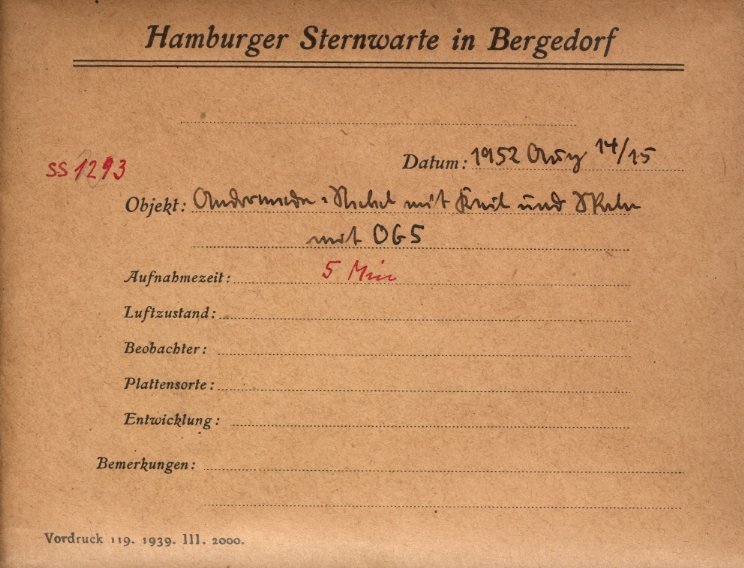 Hamburger Sternwarte in Bergedorf
SS 1293
Datum: 1952 Aug 14/15
Objekt: Andromeda-Nebel mit Keil und Skala
mit OG5
Aufnahmezeit: 5 Min
Luftzustand:
Beobachter:
Plattensorte:
Entwicklung:
Bemerkungen:
Vordruck 119. 1939. III. 2000.